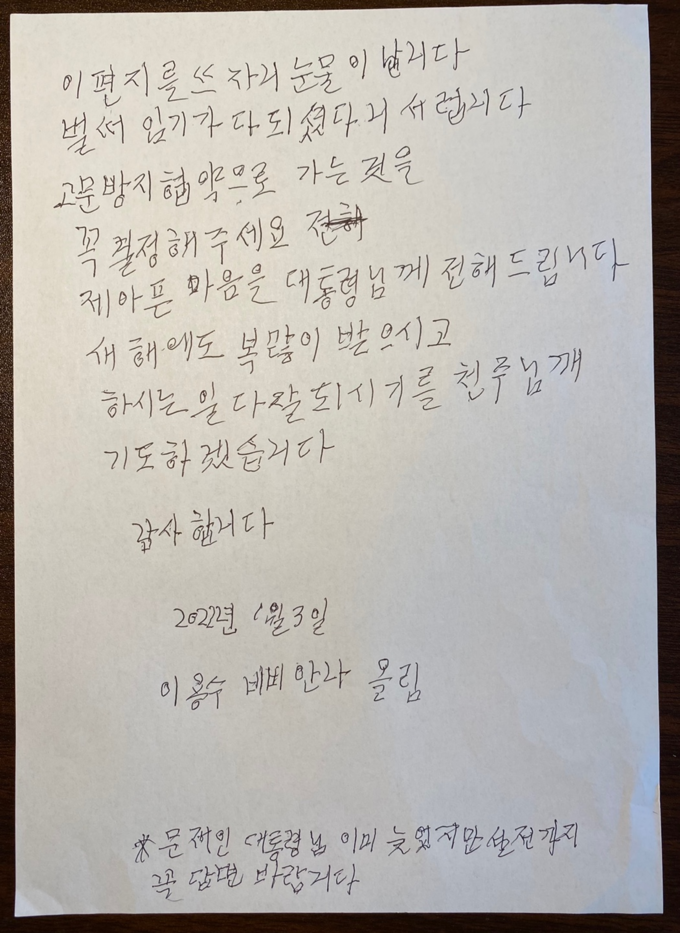 이 편지를 쓰 자리 눈물이 납니다
벌써 임기가 다 되셨다니 서럽니다
고문방지협약으로 가는 것을
꼭 결정해주세요
제아픈 마음을 대통령님께 전해드립니다
새해에도 복많이 받으시고
하시는 일 다 잘 되시기를 천주님깨
기도하겠습니다
감사합니다
2022년 1월 3일
이용수 비비안나 올림
※ 문재인 대통령님 이미 늦었지만 설전까지
꼭 답변 바랍니다